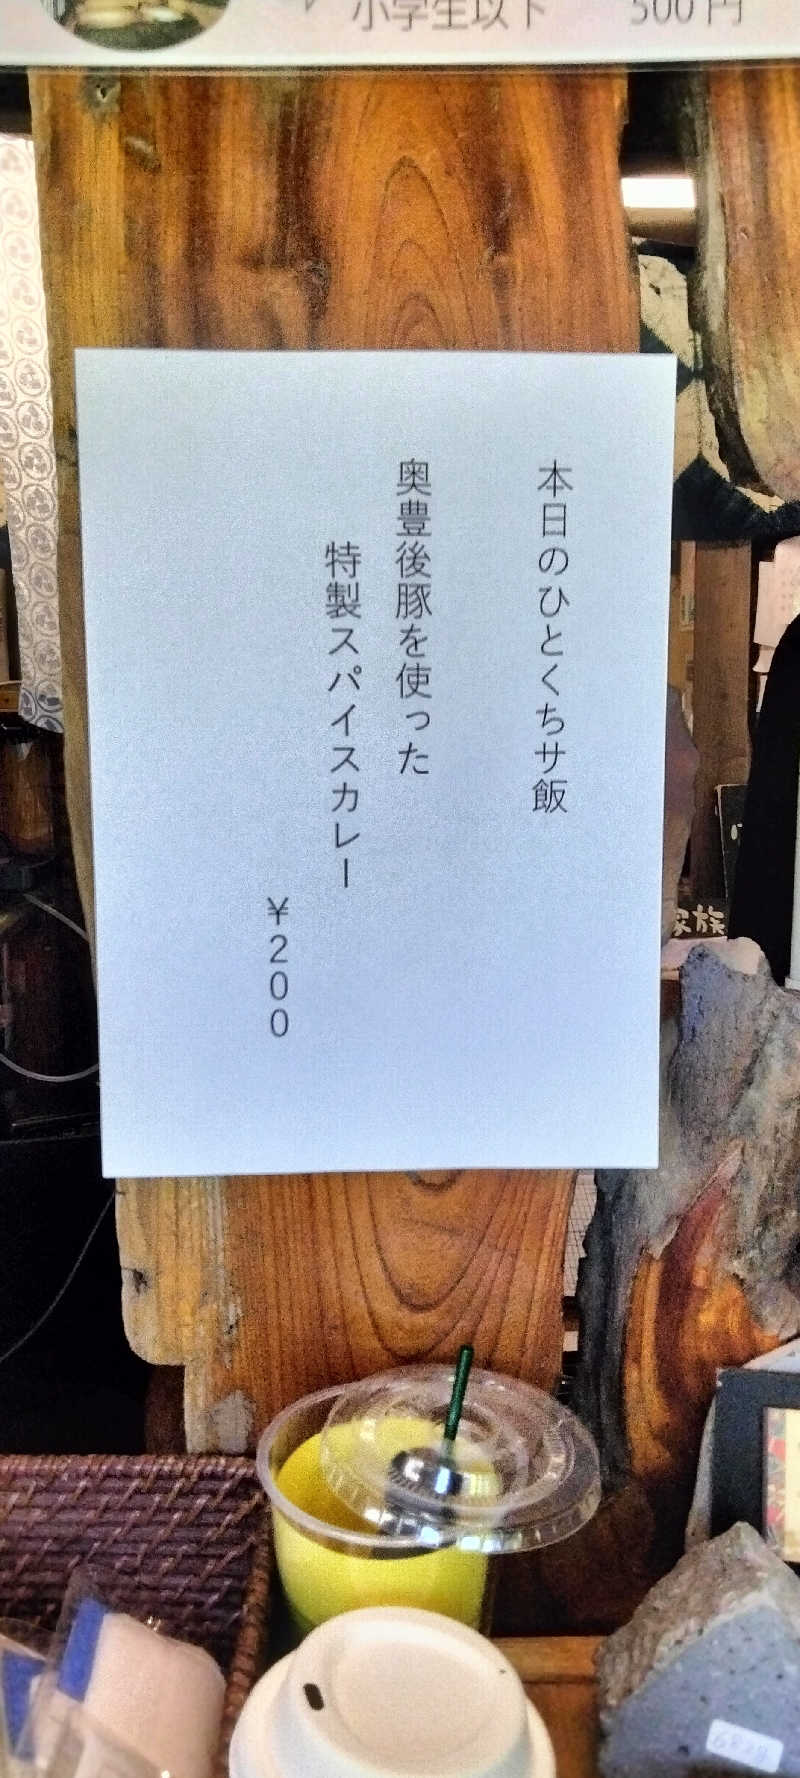 小学生以下 500円
本日のひとくちサ飯
奥豊後豚を使った
特製スパイスカレー
¥200
家族